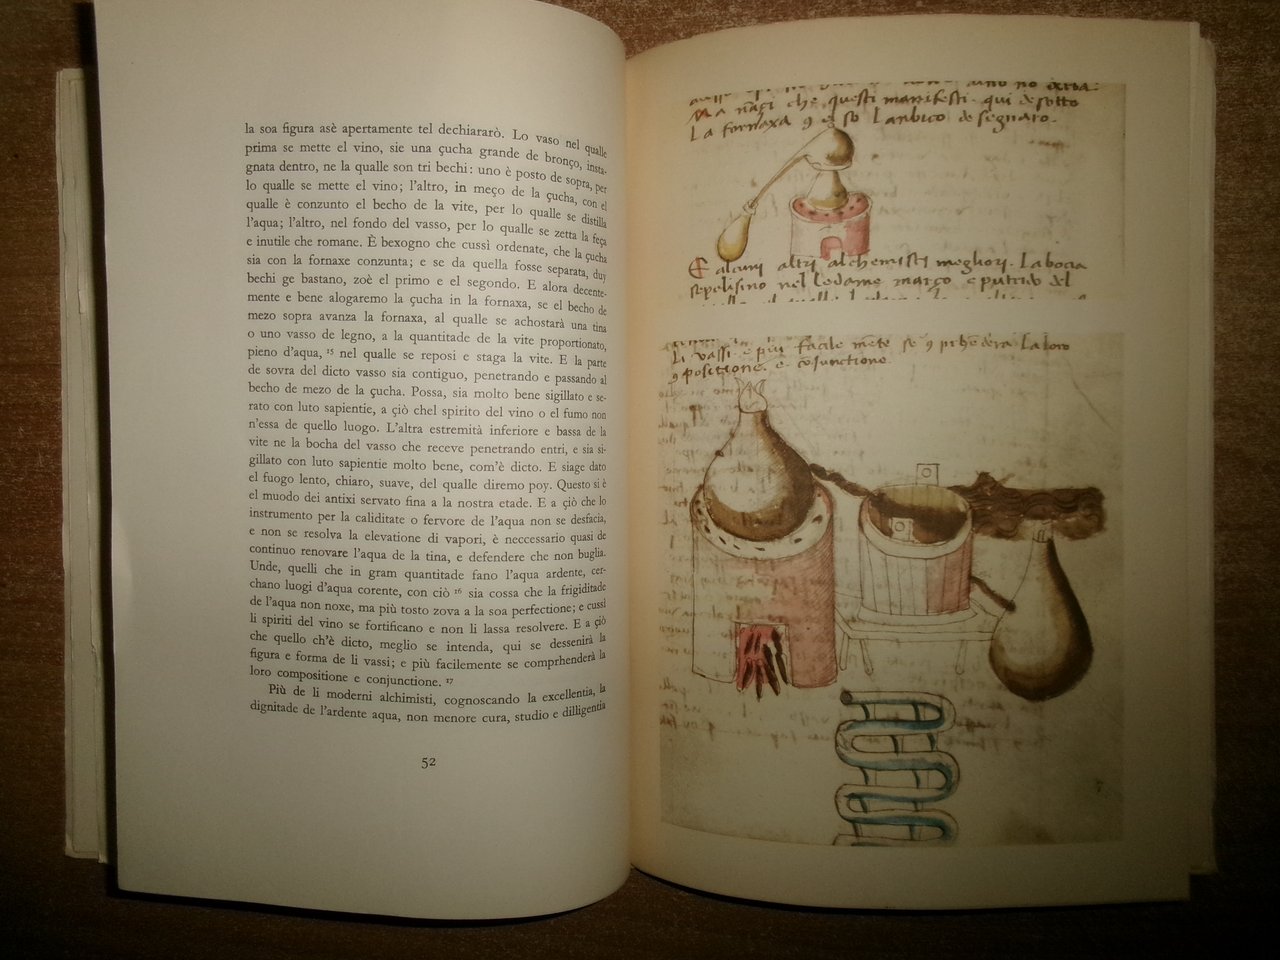 la soa figura asè apertamente tel dechiararò. Lo vaso nel qualle
prima se mette el vino, sie una çucha grande de bronço, insta-
gnata dentro, ne la qualle son tri bechi: uno è posto de sopra, per
lo qualle se mette el vino; l'altro, in meço de la çucha, con el
qualle è conzunto el becho de la vite, per lo qualle se distilla
l'aqua; l'altro, nel fondo del vasso, per lo qualle se zetta la feça
e inutile che romane. È bexogno che cussì ordenate, che la çucha
sia con la fornaxe conzunta; e se da quella fosse separata, duy
bechi ge bastano, zoè el primo e el segondo. E alora decente-
mente e bene alogaremo la çucha in la fornaxa, se el becho de
mezo sopra avanza la fornaxa, al qualle se achostarà una tina
o uno vasso de legno, a la quantitade de la vite proportionato,
pieno d'aqua, 15 nel qualle se reposi e staga la vite. E la parte
de sovra del dicto vasso sia contiguo, penetrando e passando al
becho de mezo de la çucha. Possa, sia molto bene sigillato e se-
rato con luto sapientie, a çiò chel spirito del vino o el fumo non
n'essa de quello luogo. L'altra estremità inferiore e bassa de la
vite ne la bocha del vasso che receve penetrando entri, e sia si-
gillato con luto sapientie molto bene, com'è dicto. E siage dato
el fuogo lento, chiaro, suave, del qualle diremo poy. Questo si è
el muodo dei antixi servato fina a la nostra etade. E a çiò che lo
instrumento per la caliditate o fervore de l'aqua non se desfacia,
e non se resolva la elevatione di vapori, è neccessario quasi de
continuo renovare l'aqua de la tina, e defendere che non buglia.
Unde, quelli che in gram quantitade fano l'aqua ardente, cer-
chano luogi d'aqua corente, con ciò 16 sia cossa che la frigiditade
de l'aqua non noxe, ma più tosto zova a la soa perfectione; e cussì
li spiriti del vino se fortificano e non li lassa resolvere. E a çiò
che quello ch'è dicto, meglio se intenda, qui se dessenirà la
figura e forma de li vassi; e più facilemente se comprhenderà la
loro compositione e conjunctione. 17
Più de li moderni alchimisti, cognoscando la excellentia, la
dignitade de l'ardente aqua, non menore cura, studio e dilligentia
52
che questi manifesti. qui de sotto
La fornaxa 9 e so Lanbico desegnaro.
E alcuni altri alchemisti megliori. La bocia
sepelisino nel ledame março e putrido del
Li vassi e più facile mẽte se 9prhẽdera La loro
9positione. e cõjunctione.